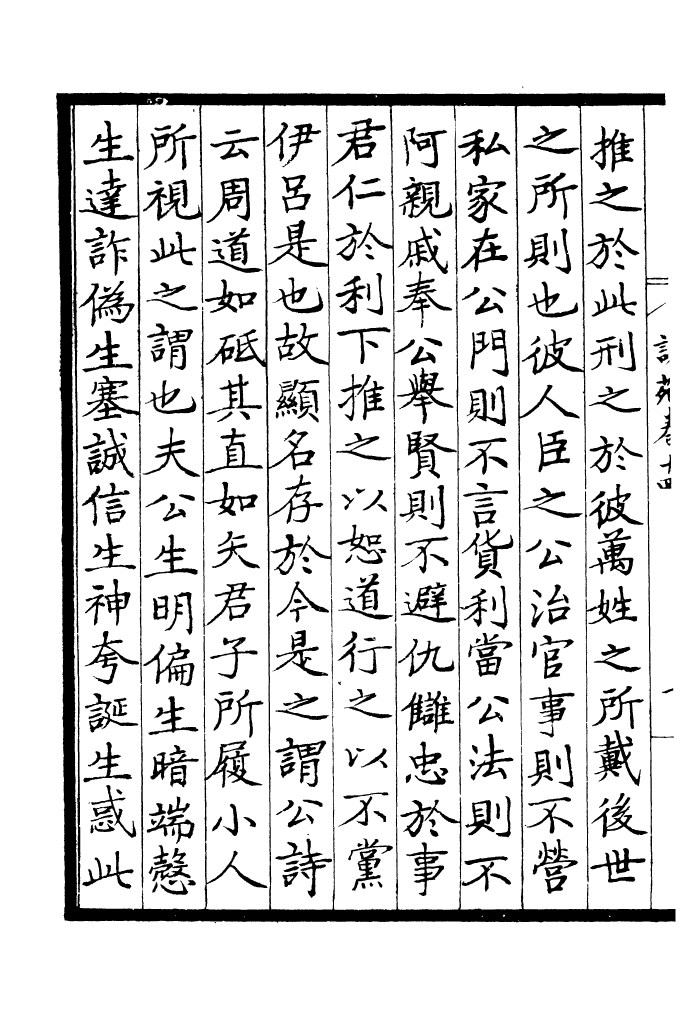 說苑卷十四
一
推之於此刑之於彼萬姓之所戴後世
之所則也彼人臣之公治官事則不營
私家在公門則不言貨利當公法則不
阿親戚奉公舉賢則不避仇讎忠於事
君仁於利下推之以恕道行之以不黨
伊呂是也故顯名存於今是之謂公詩
云周道如砥其直如矢君子所履小人
所視此之謂也夫公生明偏生暗端愨
生達詐偽生塞誠信生神夸誕生惑此